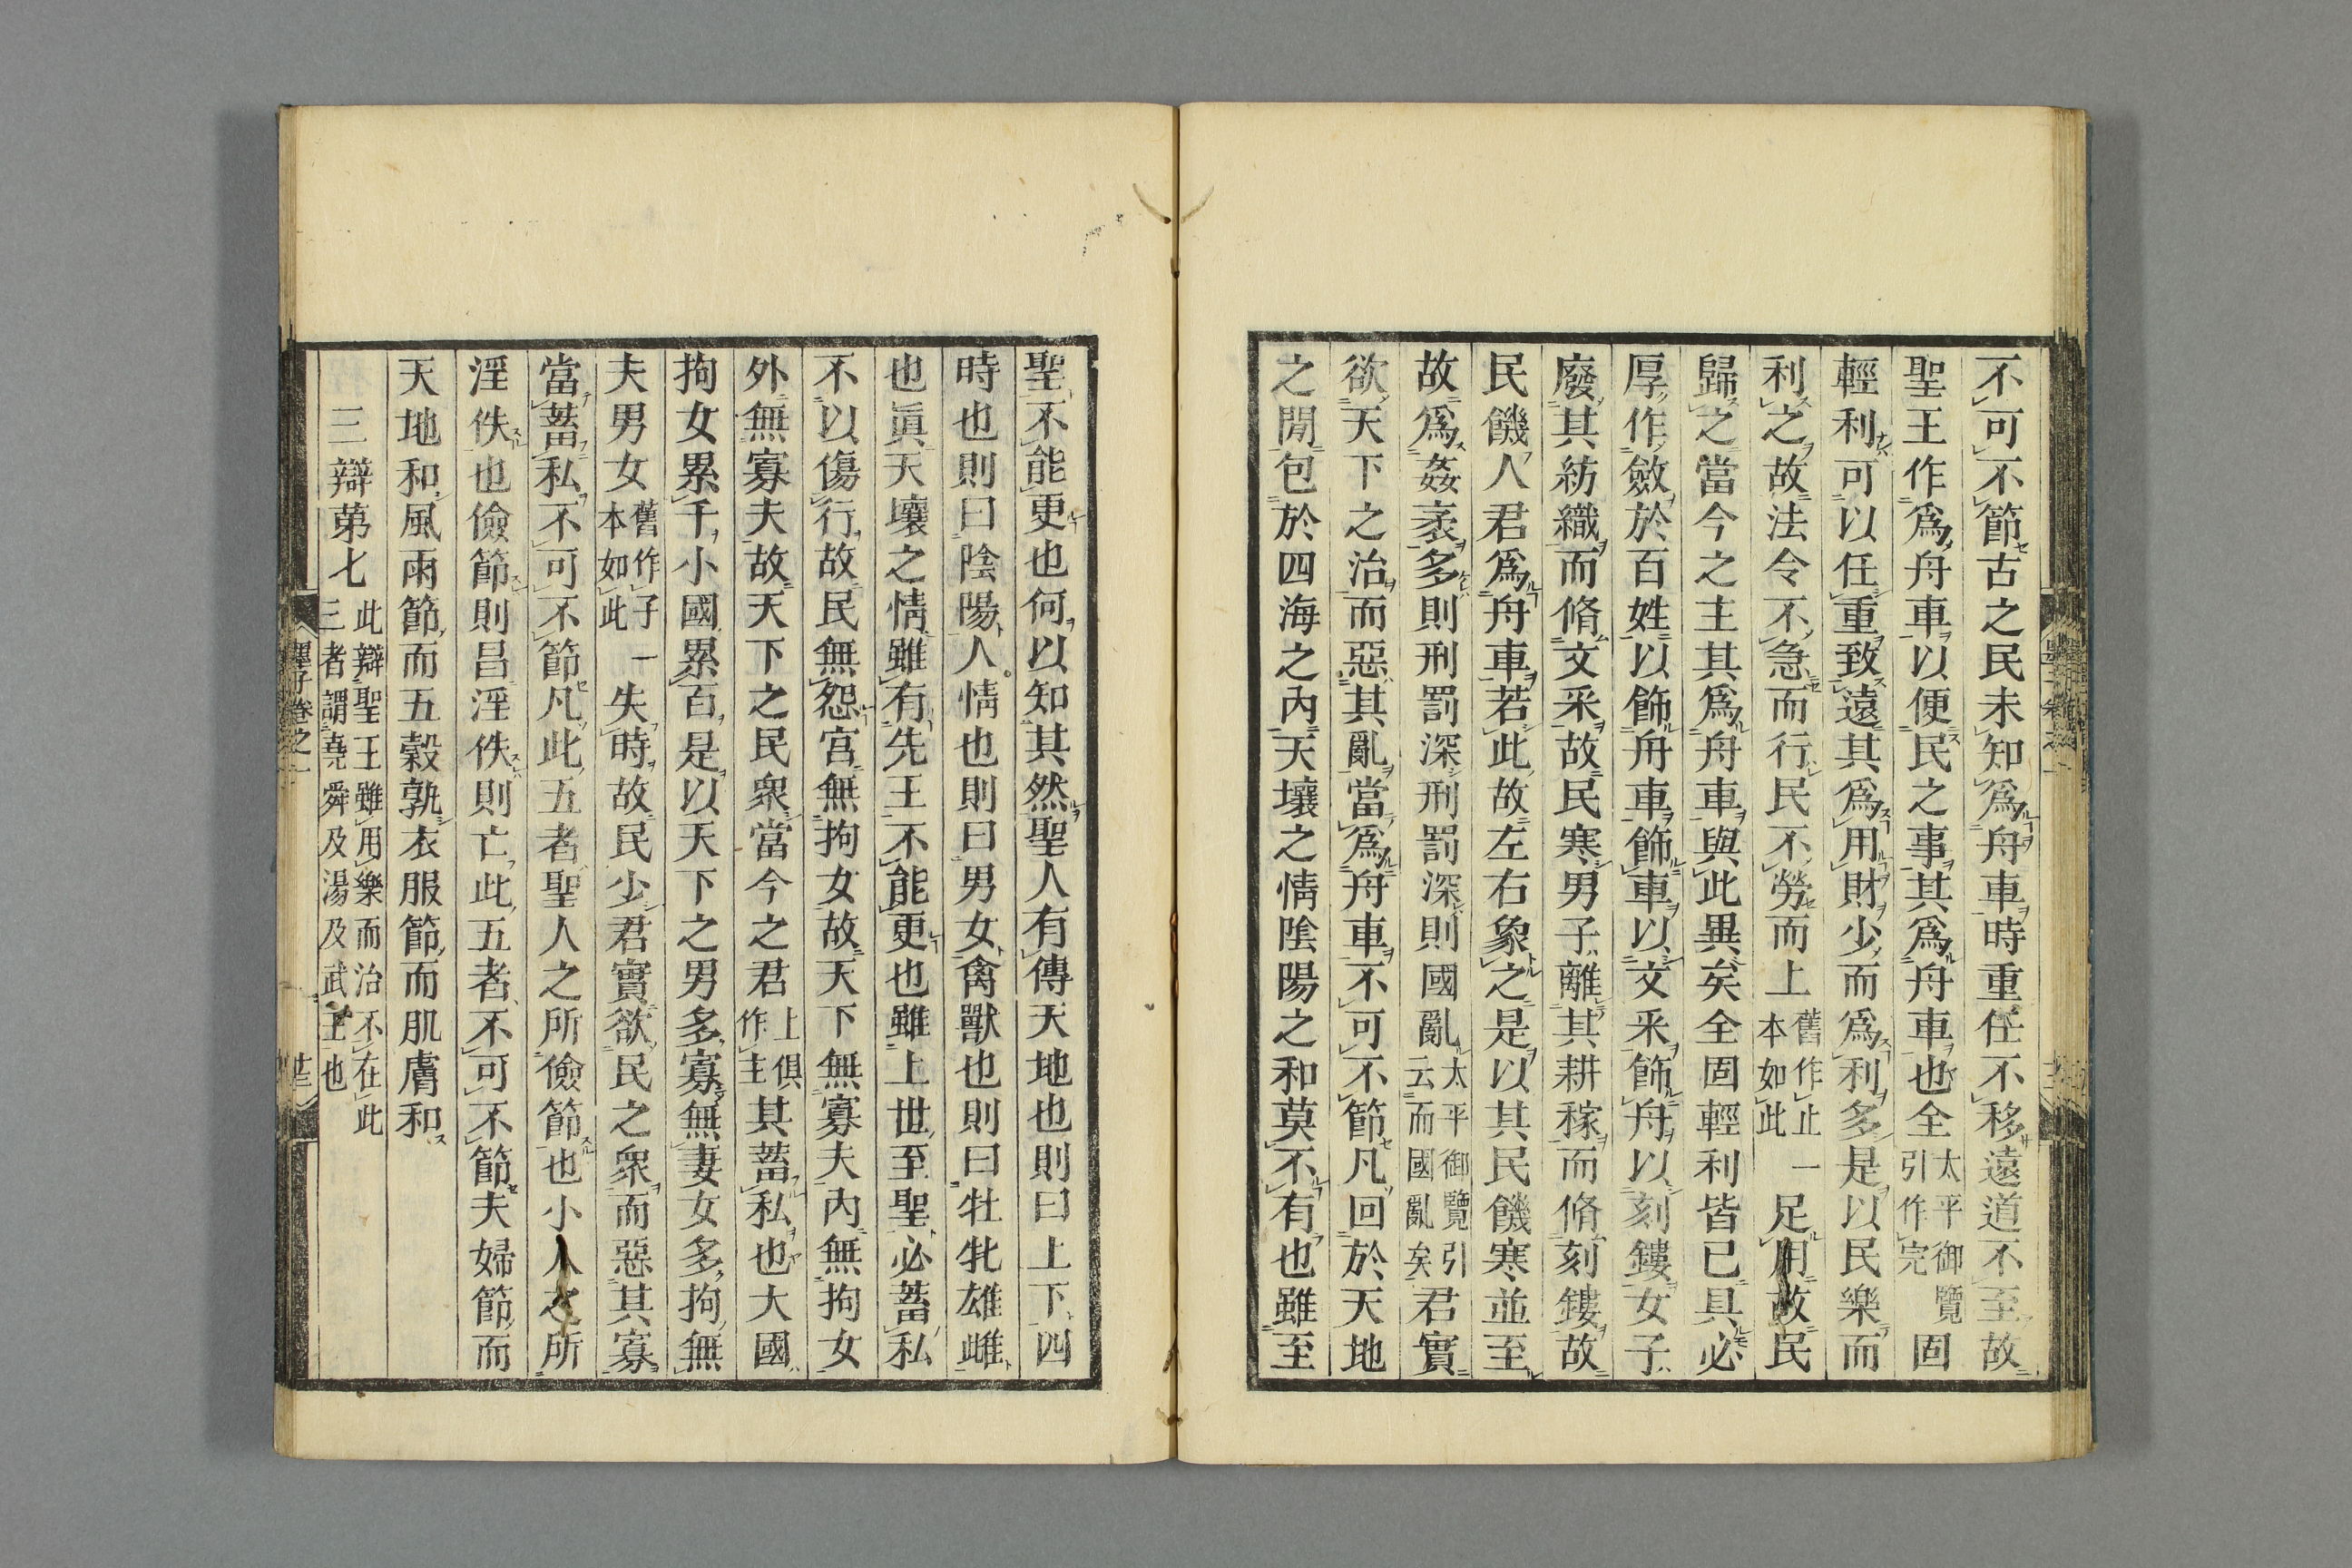 不可不節古之民未知爲舟車時重任不移遠道不至故
聖王作爲舟車以便民之事其爲舟車也全太平御覽引作完固
輕利可以任重致遠其爲用財少而爲利多是以民樂而
利之故法令不急而行民不勞而上舊作止一本如此足用故民
歸之當今之主其爲舟車與此異矣全固輕利皆已具必
厚作斂於百姓以飾舟車飾車以文采飾舟以刻鏤女子
廢其紡織而脩文采故民寒男子離其耕稼而脩刻鏤故
民饑人君爲舟車若此故左右象之是以其民饑寒並至
故爲姦衺多則刑罰深刑罰深則國亂太平御覽引云而國亂矣君實
欲天下之治而惡其亂當爲舟車不可不節凡回於天地
之閒包於四海之內天壤之情陰陽之和莫不有也雖至
聖不能更也何以知其然聖人有傳天地也則曰上下四
時也則曰陰陽人情也則曰男女禽獸也則曰牡牝雄雌
也眞天壤之情雖有先王不能更也雖上世至聖必蓄私
不以傷行故民無怨宮無拘女故天下無寡夫內無拘女
外無寡夫故天下之民衆當今之君上俱作主其蓄私也大國
拘女累千小國累百是以天下之男多寡無妻女多拘無
夫男女舊作子一本如此失時故民少君實欲民之衆而惡其寡
當蓄私不可不節凡此五者聖人之所儉節也小人之所
淫佚也儉節則昌淫佚則亡此五者不可不節夫婦節而
天地和風雨節而五穀孰衣服節而肌膚和
三辯第七此辯聖王雖用樂而治不在此三者謂堯舜及湯及武王也
墨子卷之一